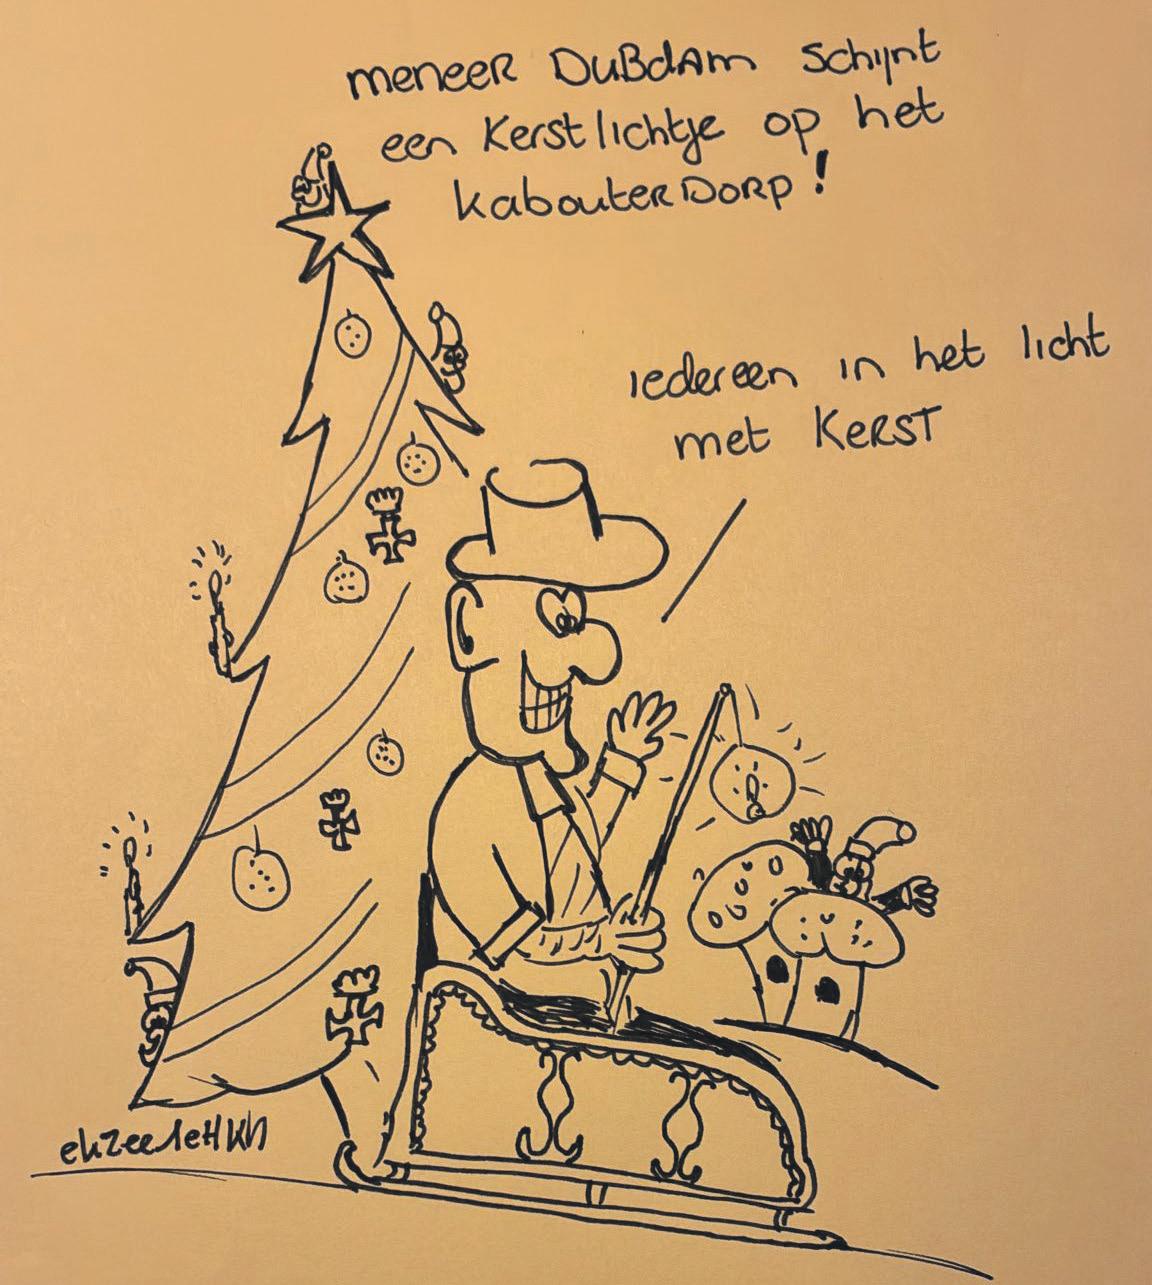 meneer Dubdam schijnt
een Kerstlichtje op het
kabouterDorp!
iedereen in het licht
met KERST